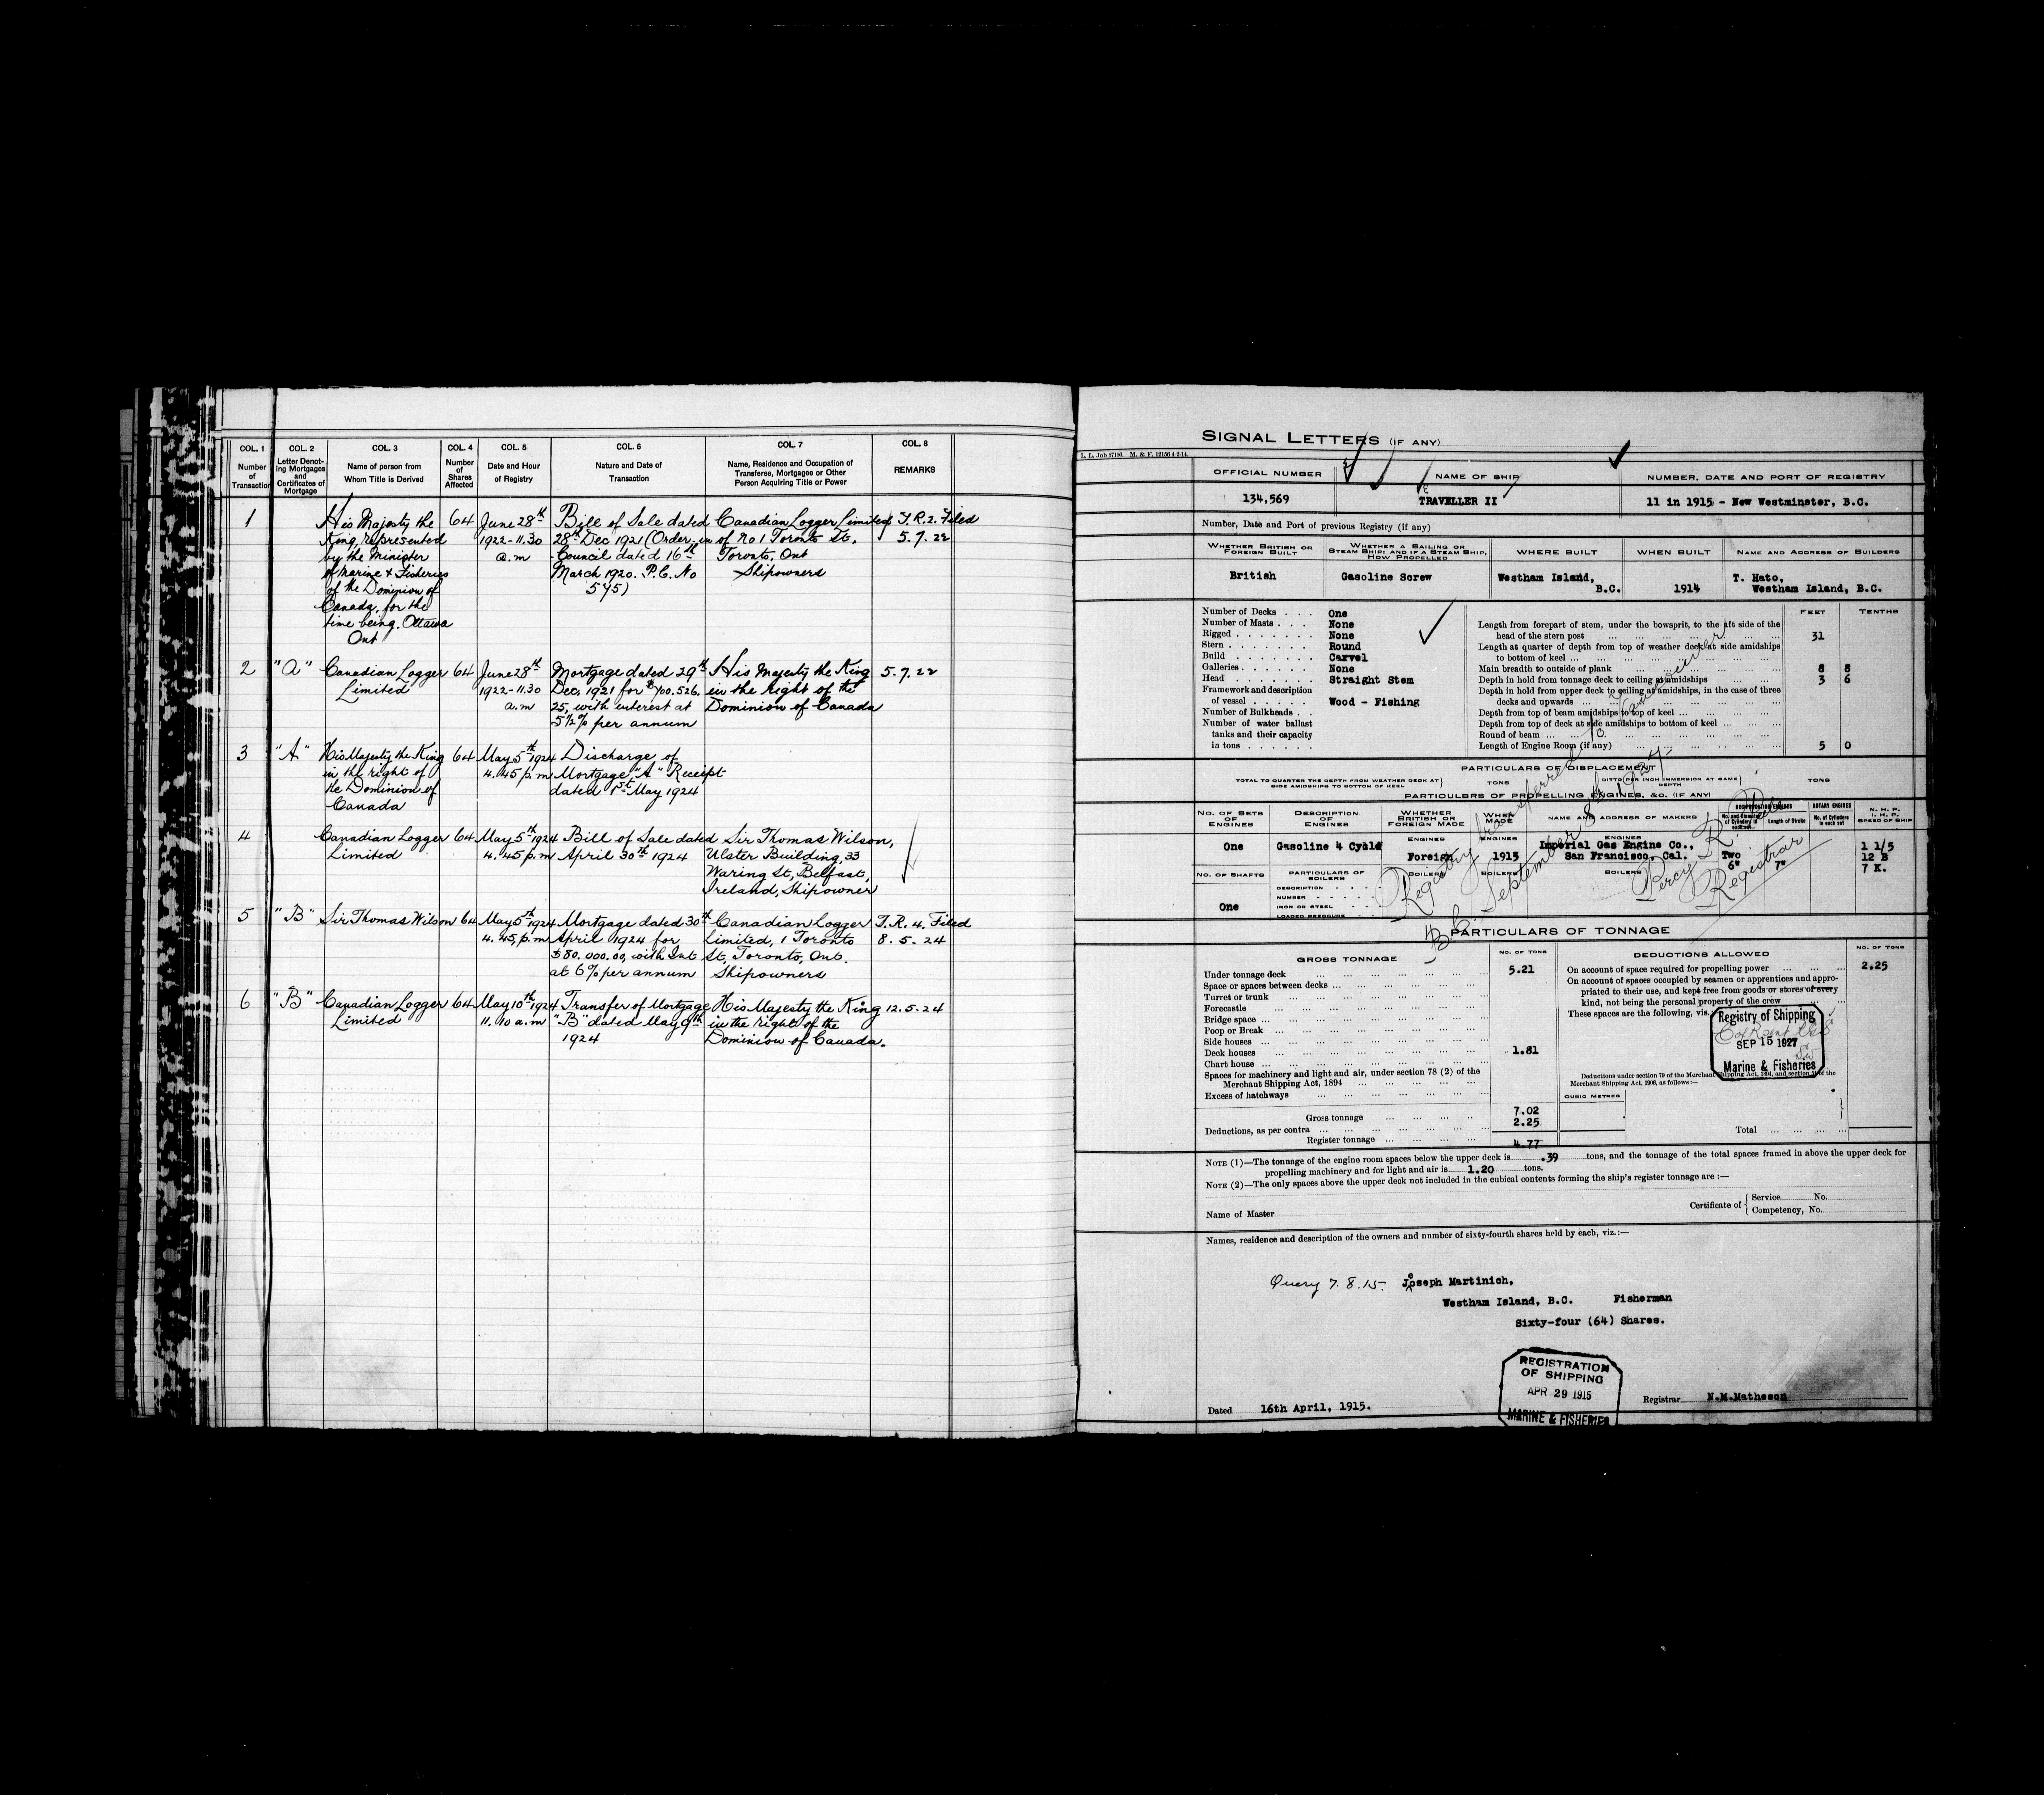 COL. 1
Number
of
Transaction
COL. 2
Letter Denot-
ing Mortgages
and
Certificates of
Mortgage
COL. 3
Name of person from
Whom Title is Derived
COL. 4
Number
of
Shares
Affected
COL. 5
Date and Hour
of Registry
COL. 6
Nature and Date of
Transaction
COL. 7
Name, Residence and Occupation of
Transferee, Mortgagee or Other
Person Acquiring Title or Power
COL. 8
REMARKS
1
His Majesty the
King, represented
by the Minister
of Marine & Fisheries
of the Dominion of
Canada, for the
time being. Ottawa
Ont
64
June 28th
1922 - 11.30
a.m
Bill of Sale dated
28th Dec 1921 (Order in
Council dated 16th
March 1920. P.C. No
545)
Canadian Logger Limited
of No 1 Toronto St.
Toronto, Ont
Shipowners
T.R.2. Filed
5.7.22
2
"A"
Canadian Logger
Limited
64
June 28th
1922 - 11.30
a.m
Mortgage dated 29th
Dec, 1921 for $400.526.
25, with interest at
5½% per annum
His Majesty the King
in the right of the
Dominion of Canada
5.7.22
3
"A"
His Majesty the King
in the right of
the Dominion of
Canada
64
May 5th 1924
4.45 p.m
Discharge of
Mortgage "A" Receipt
dated 1st May 1924
4
Canadian Logger
Limited
64
May 5th 1924
4.45 p.m
Bill of Sale dated
April 30th 1924
Sir Thomas Wilson,
Ulster Building, 33
Waring St, Belfast,
Ireland, Shipowner
5
"B"
Sir Thomas Wilson
64
May 5th 1924
4.45, p.m
Mortgage dated 30th
April 1924 for
$80.000.00, with Int
at 6% per annum
Canadian Logger
Limited, 1 Toronto
St, Toronto, Ont.
Shipowners
T.R. 4. Filed
8.5.24
6
"B"
Canadian Logger
Limited
64
May 10th 1924
11.10 a.m
Transfer of Mortgage
"B" dated May 9th
1924
His Majesty the King
in the right of the
Dominion of Canada.
12.5.24
SIGNAL LETTERS (IF ANY)
L. L. Job 37150. M. & F. 12156 4 2-14.
OFFICIAL NUMBER
134,569
NAME OF SHIP
E
TRAVELLER II
NUMBER, DATE AND PORT OF REGISTRY
11 in 1915 - New Westminster, B.C.
Number, Date and Port of previous Registry (if any)
WHETHER BRITISH OR
FOREIGN BUILT
British
WHETHER A SAILING OR
STEAM SHIP; AND IF A STEAM SHIP,
HOW PROPELLED
Gasoline Screw
WHERE BUILT
Westham Island,
B.C.
WHEN BUILT
1914
NAME AND ADDRESS OF BUILDERS
T. Hato,
Westham Island, B.C.
Number of Decks . . . One
Number of Masts . . . None
Rigged . . . None
Stern . . . Round
Build . . . Carvel
Galleries . . . None
Head . . . Straight Stem
Framework and description
of vessel . . . Wood - Fishing
Number of Bulkheads . .
Number of water ballast
tanks and their capacity
in tons . . .
FEET
TENTHS
Length from forepart of stem, under the bowsprit, to the aft side of the
head of the stern post 31
Length at quarter of depth from top of weather deck at side amidships
to bottom of keel
Main breadth to outside of plank 8 8
Depth in hold from tonnage deck to ceiling at amidships 3 6
Depth in hold from upper deck to ceiling at amidships, in the case of three
decks and upwards
Depth from top of beam amidships to top of keel
Depth from top of deck at side amidships to bottom of keel
Round of beam
Length of Engine Room (if any) 5 0
PARTICULARS OF DISPLACEMENT
TOTAL TO QUARTER THE DEPTH FROM WEATHER DECK AT
SIDE AMIDSHIPS TO BOTTOM OF KEEL
TONS
DITTO PER INCH IMMERSION AT SAME
DEPTH
TONS
PARTICULARS OF PROPELLING ENGINES, &C. (IF ANY)
NO. OF SETS
OF
ENGINES
DESCRIPTION
OF
ENGINES
WHETHER
BRITISH OR
FOREIGN MADE
WHEN
MADE
NAME AND ADDRESS OF MAKERS
RECIPROCATING ENGINES
No. and Diameter
of Cylinders in
each set
Length of Stroke
ROTARY ENGINES
No. of Cylinders
in each set
N. H. P.
I. H. P.
SPEED OF SHIP
One
Gasoline 4 Cycle
ENGINES
Foreign
ENGINES
1915
ENGINES
Imperial Gas Engine Co.,
San Francisco, Cal.
Two
6"
7"
1 1/5
12 B
7 K.
NO. OF SHAFTS
One
PARTICULARS OF
BOILERS
DESCRIPTION
NUMBER
IRON OR STEEL
LOADED PRESSURE
BOILERS
BOILERS
BOILERS
Registry transferred to Vancouver
B.C. September 8th 1927.
Percy R.
Registrar
PARTICULARS OF TONNAGE
GROSS TONNAGE
NO. OF TONS
Under tonnage deck 5.21
Space or spaces between decks
Turret or trunk
Forecastle
Bridge space
Poop or Break
Side houses
Deck houses 1.81
Chart house
Spaces for machinery and light and air, under section 78 (2) of the
Merchant Shipping Act, 1894
Excess of hatchways
Gross tonnage 7.02
Deductions, as per contra 2.25
Register tonnage 4.77
DEDUCTIONS ALLOWED
NO. OF TONS
On account of space required for propelling power 2.25
On account of spaces occupied by seamen or apprentices and appro-
priated to their use, and kept free from goods or stores of every
kind, not being the personal property of the crew
These spaces are the following, viz.
Registry of Shipping
SEP 15 1927
Marine & Fisheries
Deductions under section 79 of the Merchant Shipping Act, 1894, and section 54 of the
Merchant Shipping Act, 1906, as follows:—
CUBIC METRES
Total
NOTE (1)—The tonnage of the engine room spaces below the upper deck is .39 tons, and the tonnage of the total spaces framed in above the upper deck for
propelling machinery and for light and air is 1.20 tons.
NOTE (2)—The only spaces above the upper deck not included in the cubical contents forming the ship's register tonnage are :—
Name of Master
Certificate of { Service No.
Competency, No.
Names, residence and description of the owners and number of sixty-fourth shares held by each, viz.:—
Query 7.8.15. Joseph Martinich,
Westham Island, B.C. Fisherman
Sixty-four (64) Shares.
REGISTRATION
OF SHIPPING
APR 29 1915
MARINE & FISHERIES
Dated 16th April, 1915.
Registrar N.M.Matheson